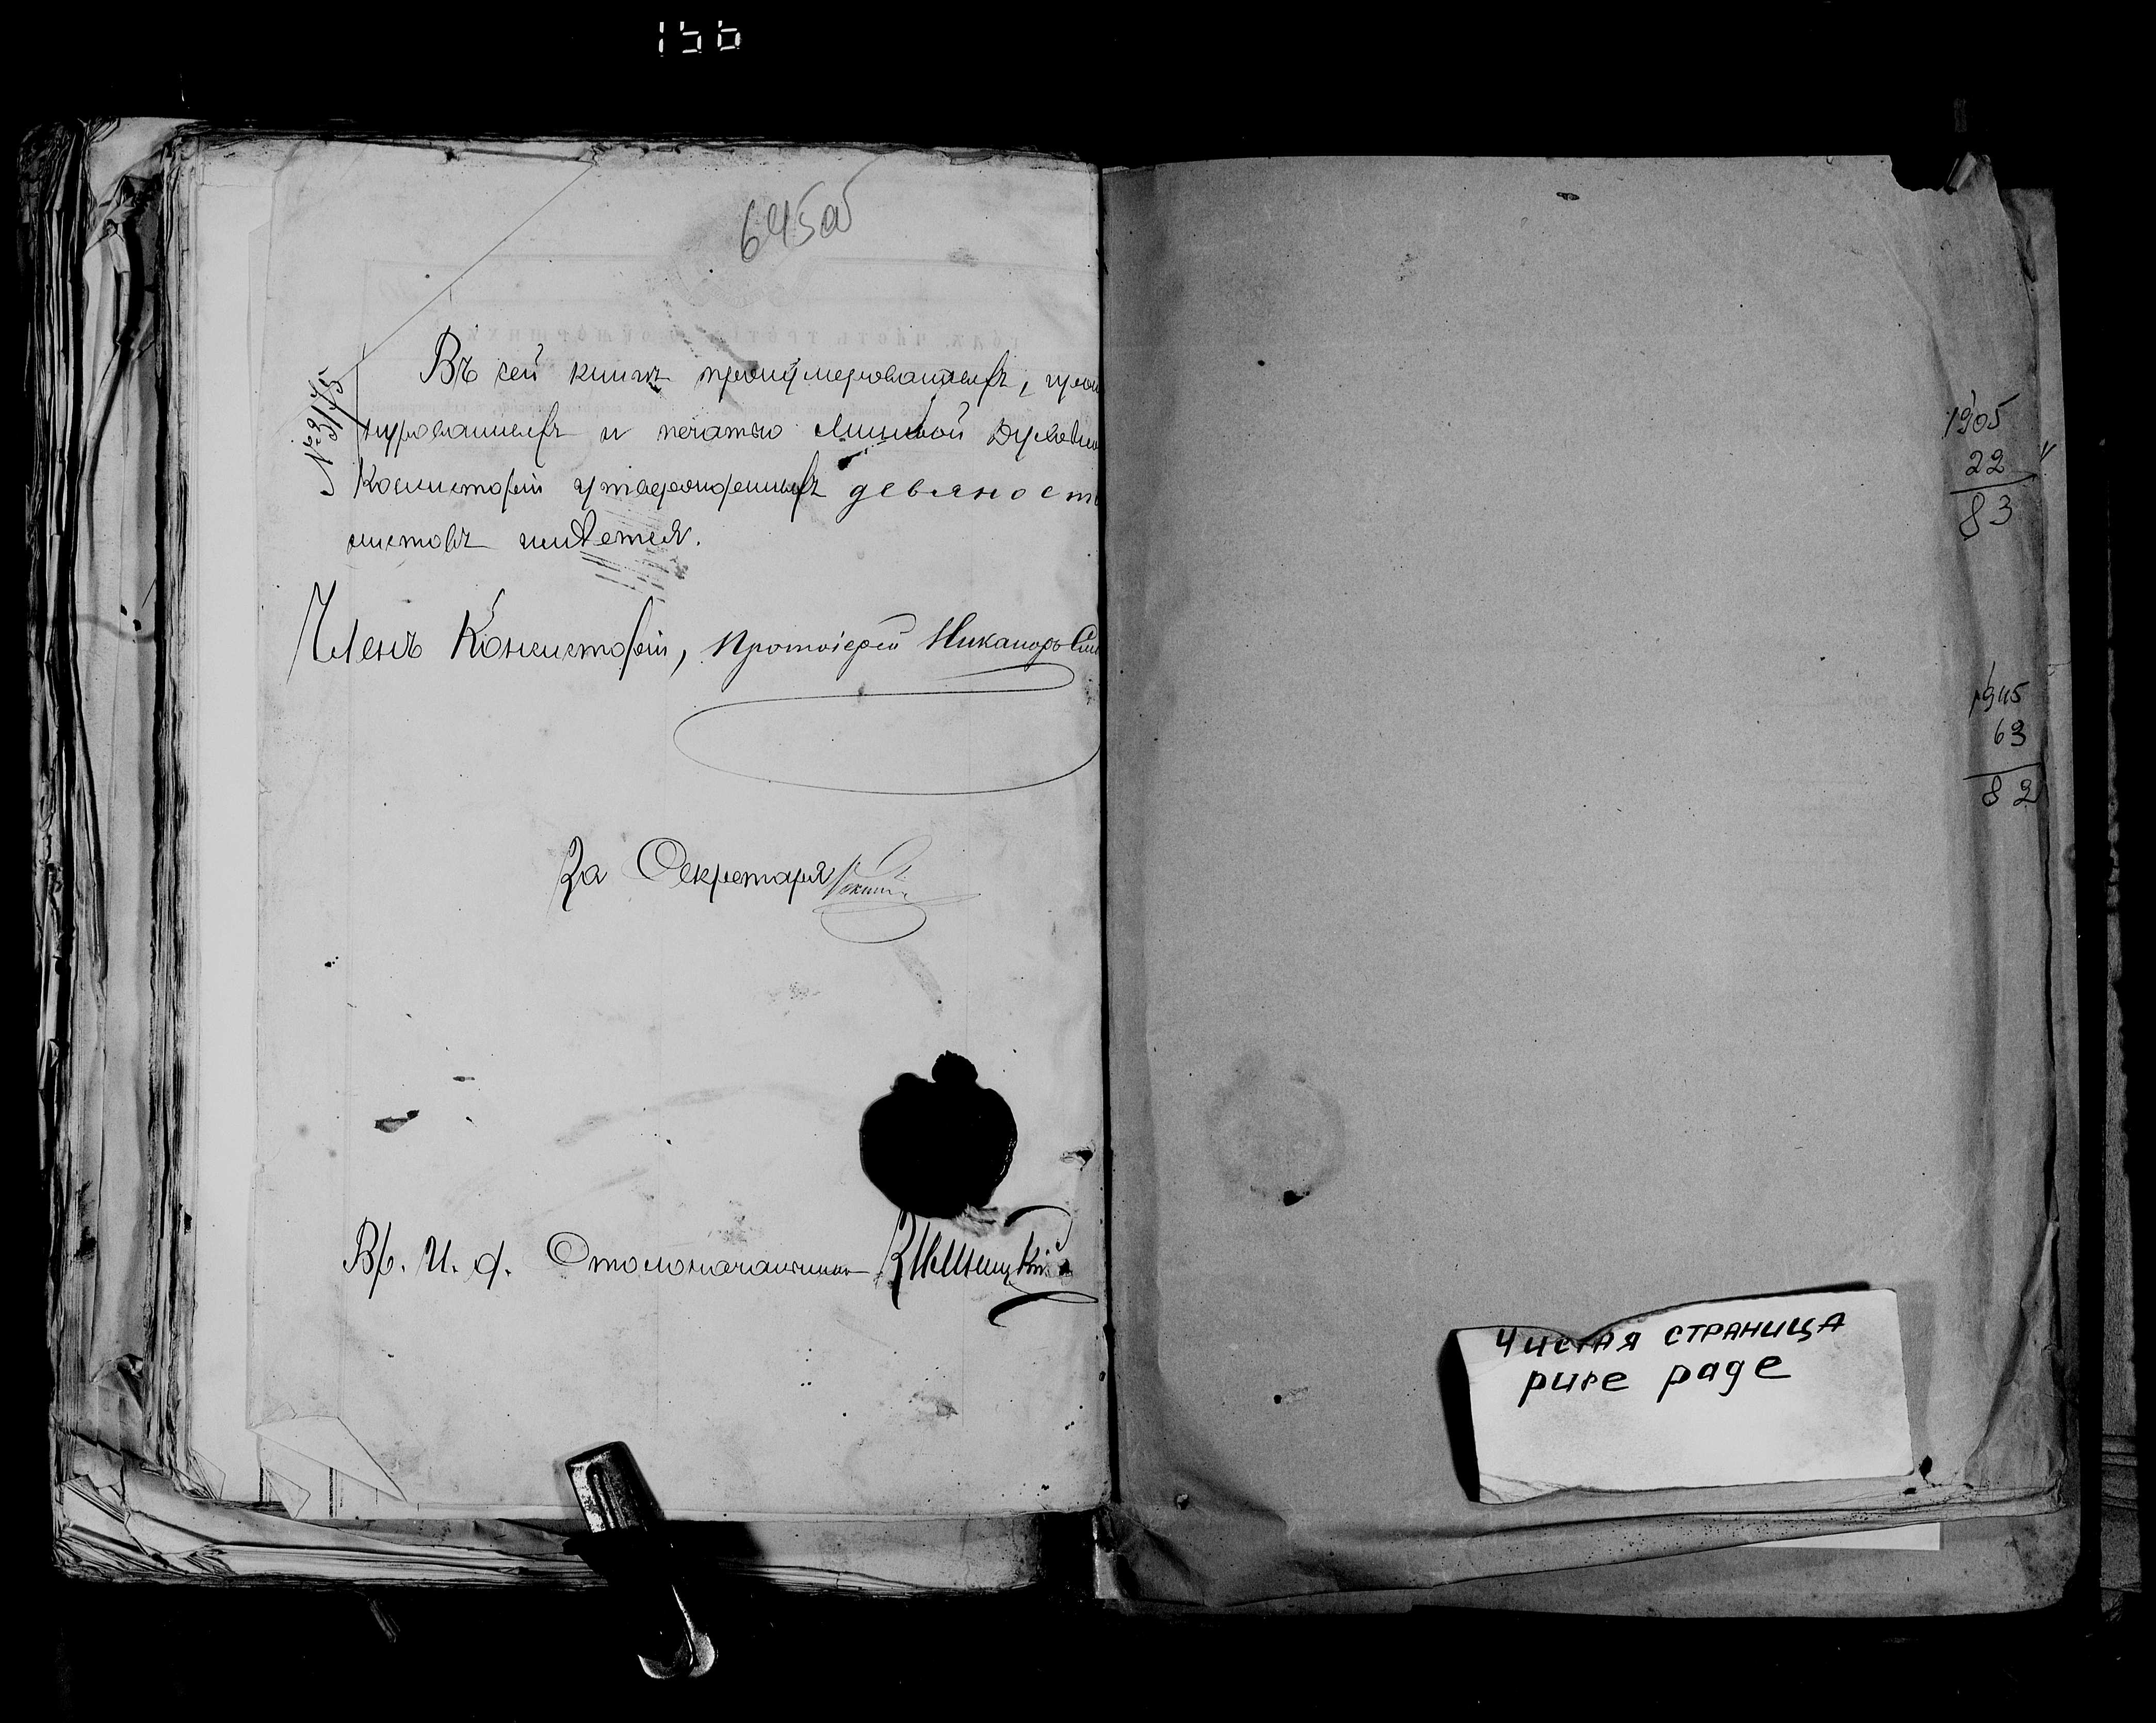 156
645об
№ 3175
Въ сей книгѣ пронумерованныхъ, прош
нурованныхъ и печатью Духовно
Консисторіи утвержденныхъ девяност
листовъ имѣется.
Членъ Консисторіи, Протоіерей Никаноръ
За Секретаря
Вр. И. д. Столоначальника
1905
22
83
1905
63
82
Чистая страница
pure page